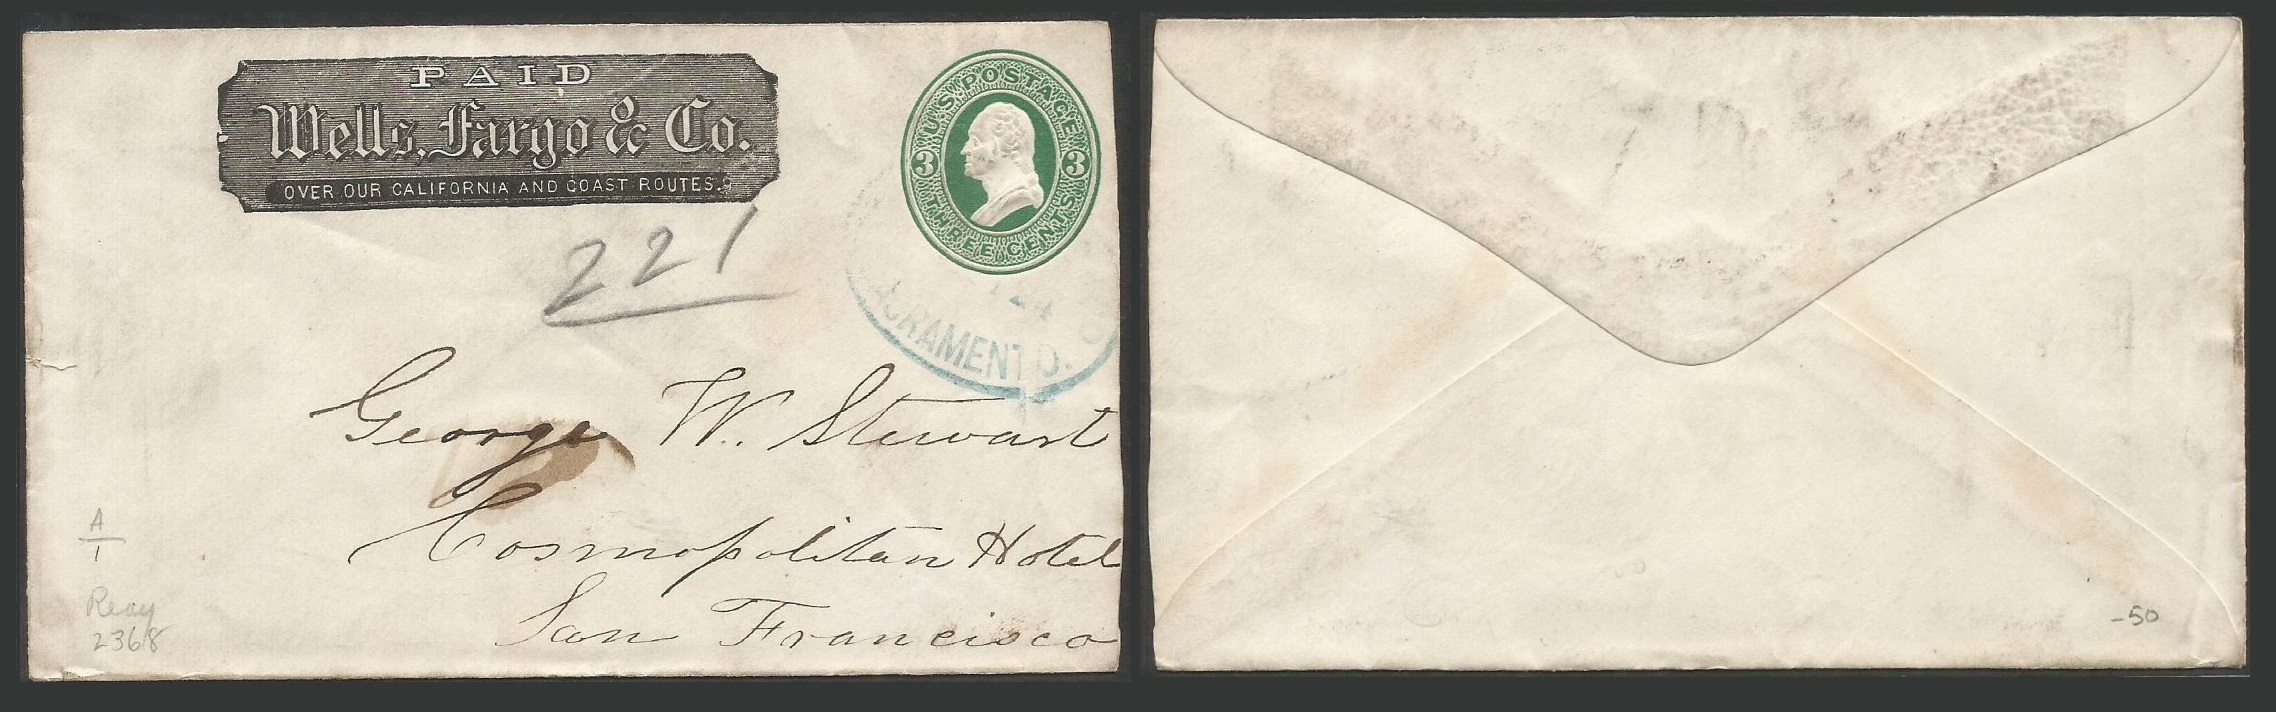 PAID
Wells, Fargo & Co.
OVER OUR CALIFORNIA AND COAST ROUTES.
U.S. POSTAGE
3 3
THREE CENTS
221
24
SACRAMENTO.
George W. Stewart
Cosmopolitan Hotel
San Francisco
A
1
Reay
2368
-50